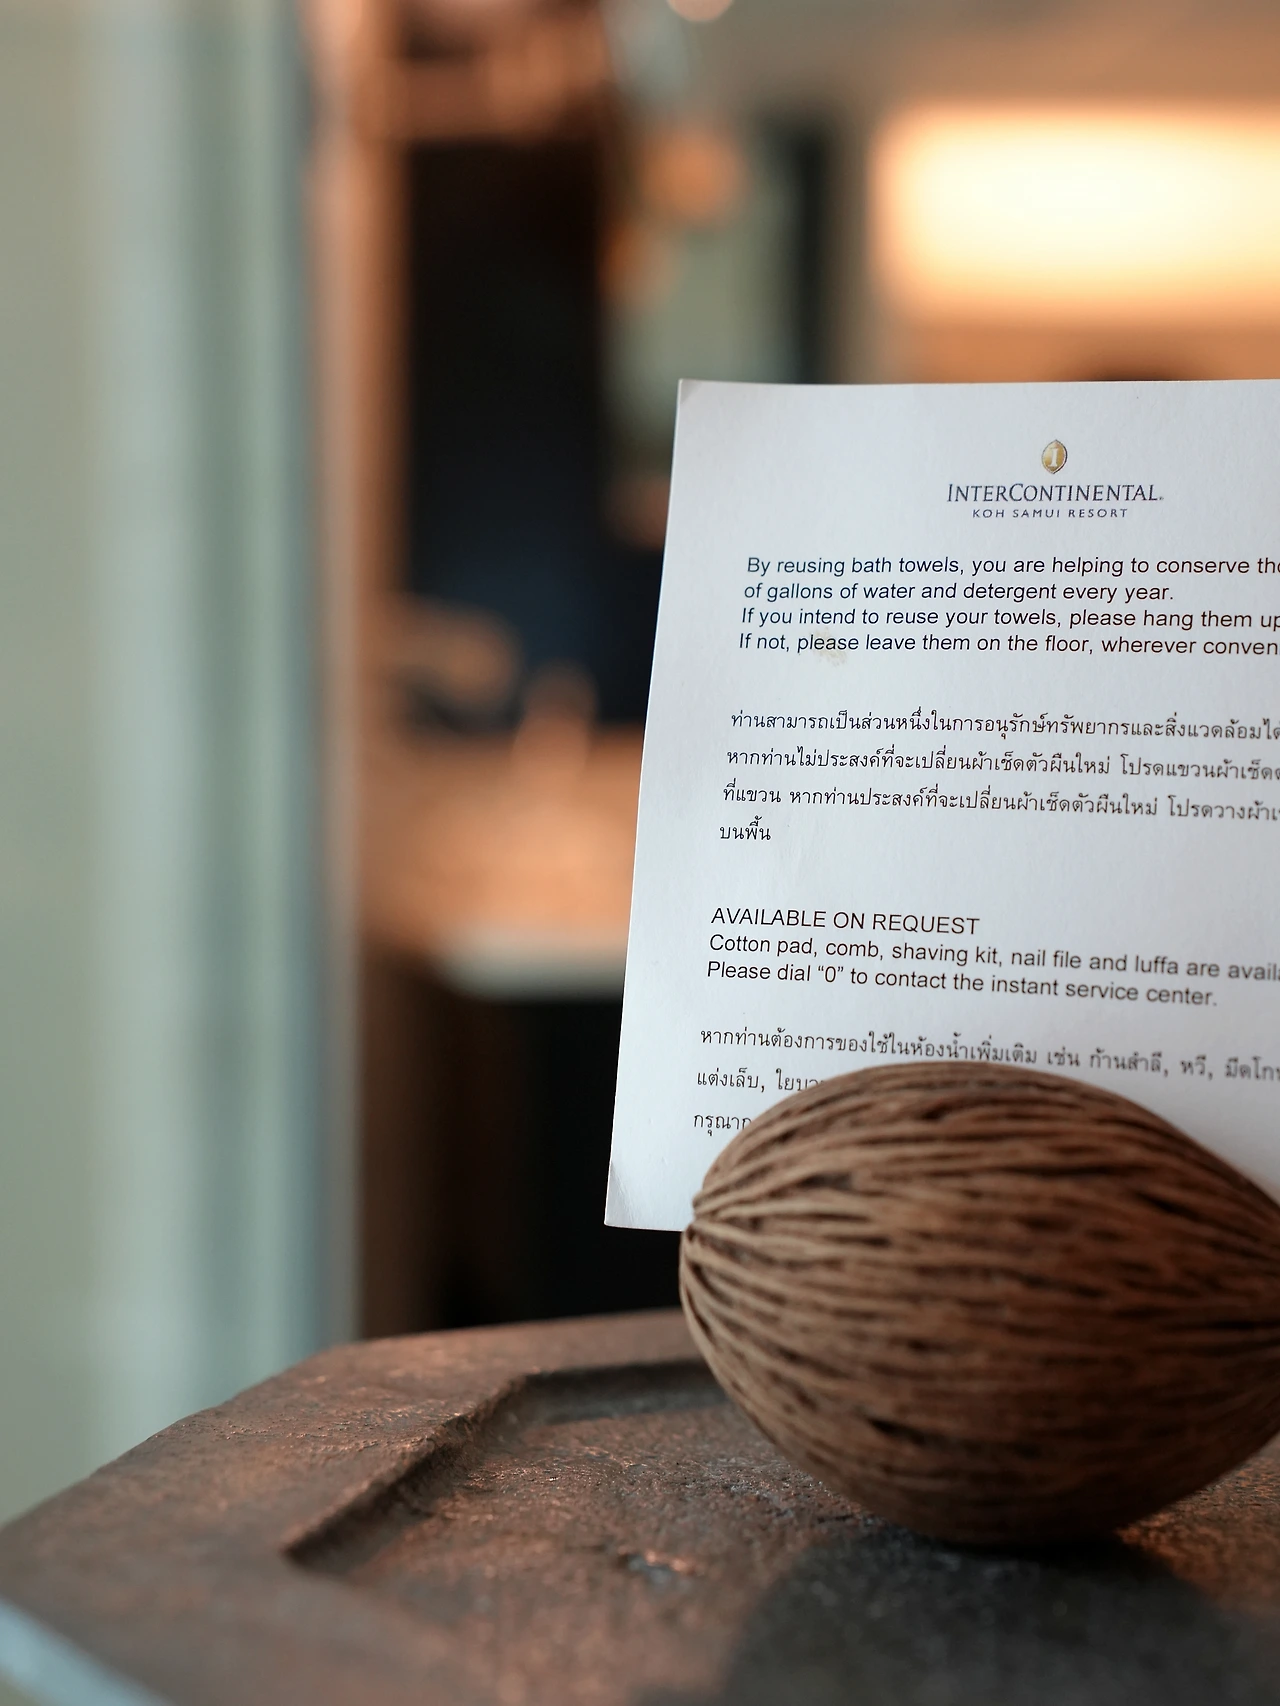 INTERCONTINENTAL
KOH SAMUI RESORT
By reusing bath towels, you are helping to conserve
of gallons of water and detergent every year.
If you intend to reuse your towels, please hang them up
If not, please leave them on the floor, wherever
ท่านสามารถเป็นส่วนหนึ่งในการอนุรักษ์ทรัพยากรและสิ่งแวดล้อมได้
หากท่านไม่ประสงค์ที่จะเปลี่ยนผ้าเช็ดตัวผืนใหม่ โปรดแขวนผ้าเช็ด
ที่แขวน หากท่านประสงค์ที่จะเปลี่ยนผ้าเช็ดตัวผืนใหม่ โปรดวางผ้า
บนพื้น
AVAILABLE ON REQUEST
Cotton pad, comb, shaving kit, nail file and luffa are
Please dial “0” to contact the instant service center.
หากท่านต้องการของใช้ในห้องน้ำเพิ่มเติม เช่น ก้านสำลี, หวี,
แต่งเล็บ,